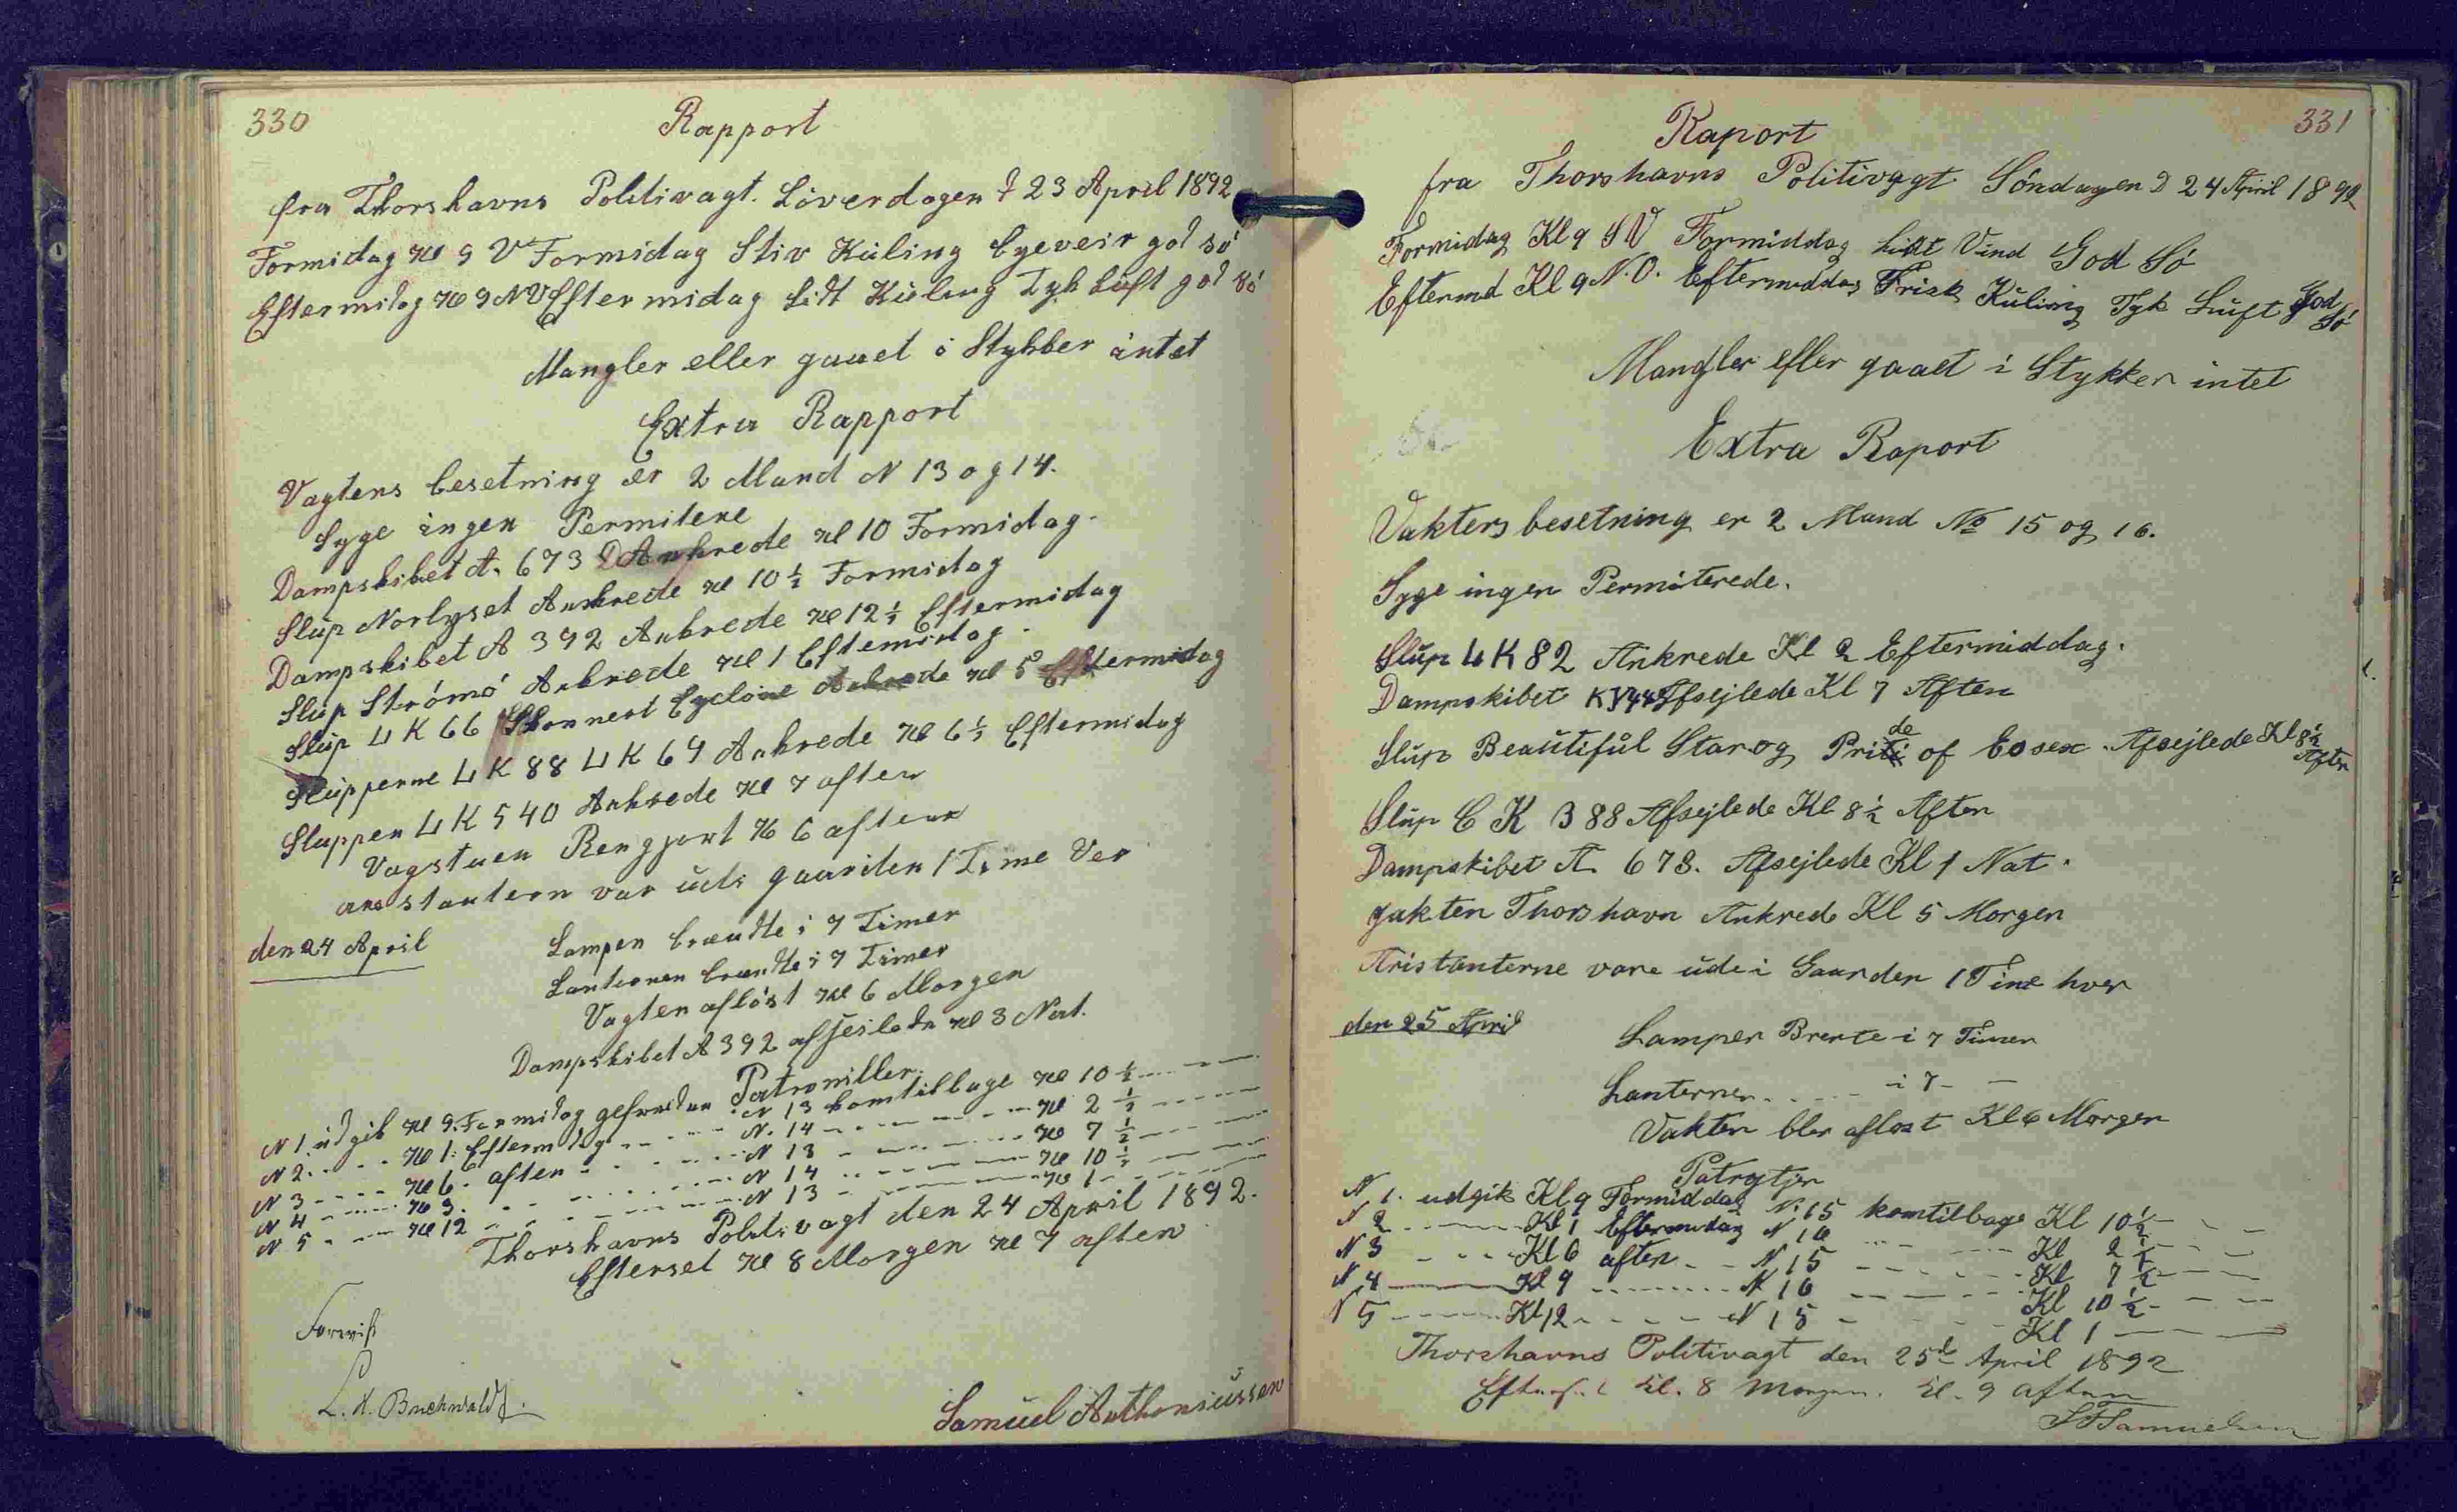 330
Rapport
fra Thorshavns Politivagt. Löverdagen d 23 April 1892
Formidag Kl 9 V Formidag Stiv Küling Egeveir god só
Eftermidag Kl 9 NV Eftermidag lidt Küling Tyk Lüft god só
Mangler eller gaaet i Stykker intet
Extra Rapport
Vagtens besetning er 2 Mand N 13 og 14.
Syge ingen Permitene
Dampskibet A. 673 Ankrede Kl 10 Formidag.
Slüp Norlyset Ankrede Kl 10 ½ Formidag
Dampskibet A 392 Ankrede Kl 12 ½ Eftermidag
Slüp Strómó Ankrede Kl 1 Eftemidag.
Slüp LK 66 Skonnert Cyclone Ankrede Kl 5 Eftermidag
Slüpperne LK 88 LK 69 Ankrede Kl 6 ½ Eftermidag
Sluppen LK 540 Ankrede Kl 7 aften
Vagstuen Rengjort Kl 6 aftenen
arrestantern var üdi gaarden 1 Time Ver
den 24 April
Lampen brændte i 7 Timer
Lanternen brændte i 7 Timer
Vagten aflöst Kl 6 Morgen
Dampskibet A 392 afseilede Kl 3 Nat.
Patroniller.
N 1. üdgik Kl 9. Formidag N 13 komtilbage Kl 10 ½
N 2. Kl 1. Eftermidag N. 14 Kl 2 ½
N 3 Kl 6. aften N 13 Kl 7 ½
N 4 Kl 9. N 14 Kl 10 ½
N 5 Kl 12 N 13 Kl 1
Thorshavns Politivagt den 24 April 1892.
Efterset Kl 8 Morgen Kl 7 aften
Forevist
L. A. Buchwaldt.
Samüel Anthoniüssen
331
Raport
fra Thorshavns Politivagt Söndagen D 24 April 1892
Formidag Kl 9 SV Formiddag lidt Vind God Só
Eftermd Kl 9 N.O. Eftermiddag Frisk Küling Tyk Luft God Só
Mangler eller gaaet i Stykker intet
Extra Raport
Vakters besetning er 2 Mand No 15 og 16.
Syge ingen Permiterede.
Slüp LK 82 Ankrede Kl 2 Eftermiddag.
Dampskibet KY 44 Afsejlede Kl 7 Aften
Slüp Beautifül Star og Pride of Essex. Afsejlede Kl 8½ Aften
Slüp C K 388 Afsejlede Kl 8 ½ Aften
Dampskibet A 673. Afsejlede Kl 1 Nat.
Jakten Thorshavn Ankrede Kl 5 Morgen
Aristanterne vare üde i Gaarden 1 Time hver
den 25 April
Lampen Brente i 7 Timer
Lanternen i 7
Vakten blev aflöst Kl 6 Morgen
N 1. udgik Kl 9 Formiddag N. 15 komtilbage Kl 10 ½
N 2 Kl 1 Eftermidag N 16 Kl 2 ½
N 3 Kl 6 aften N 15 Kl 7 ½
N 4 Kl 9 N 16 Kl 10 ½
N 5 Kl 12 N 15 Kl 1
Thorshavns Politivagt den 25de April 1892
Efterset Kl. 8 Morgen. Kl. 9 Aften
Samuelsen